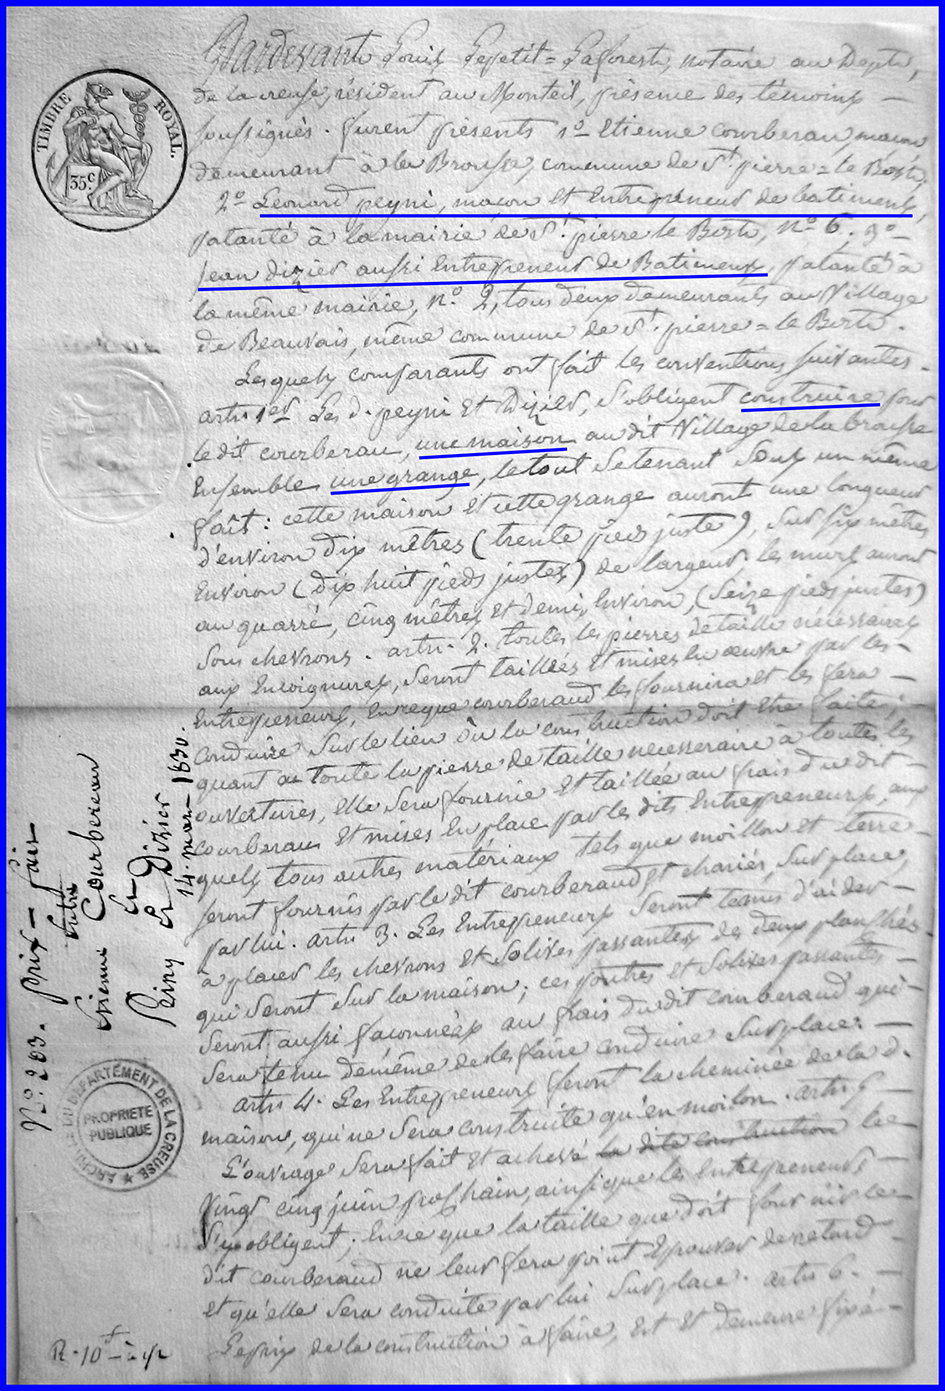 TIMBRE ROYAL.
35 c
Pardevant Louis Lepetit=Laforest, notaire au Depte,
de la creuse, résident au Monteil, présence des témoins
soussignés. furent présents 1o Etienne Courberau, macon
demeurant à la Brousse, commune de St. pierre=le Bost,
2o Léonard peyni, maçon et Entrepreneur de batiments,
patanté à la mairie de St. pierre le Bost, No 6. 3o
jean dizier aussi Entrepreneur de Batiments, patanté à
la même mairie, No. 2, tous deux demeurants au Village
de Beauvais, même commune de St. pierre=le Bost.
Lesquels comparants ont fait les conventions suivantes.
artis 1er Les d. peyni et Dizier, s'obligent construire pour
le dit courberau, une maison au dit Village de la brousse
Ensemble une grange, le tout se tenant sous un même
fait: cette maison et cette grange auront une longueur
d'environ dix mêtres (trente pieds juste), sur six mêtres
Environ (dix huit pieds justes) de largeur les murs auront
au quarré, cinq mêtres et demi, Environ, (seize pieds justes)
sous chevrons. artis. 2. toutes les pierres de taille nécessaires
aux Encoignures, seront taillées et mises en œuvre par les
Entrepreneurs, En ce que courberaud les fournira et les fera
conduire sur le lieu où la construction doit être faite;
quant a toute la pierre de taille necesseraire à toutes les
ouvertures, elle sera fournie et taillée au frais du dit
courberau et mises En place par les dits Entrepreneurs, aux
quels tous autres matériaux tels que moillon et terre
seront fournis par le dit courberaud et chariés, sur place,
par lui. artis 3. Les Entrepreneurs seront tenus d'aider
à placer les chevrons et solives passantes des deux planchés
qui seront sur la maison; ces poutres et solives passantes
seront aussi façonnées au frais du dit courberaud qui
sera tenu de même de les faire conduire sur place.
artis 4. Les Entrepreneurs feront la cheminée de la d.
maison, qui ne sera construite qu'en moilon. artis 5
L'ouvrage sera fait et achevé la dite construction le
vingt cinq juin prochain, ainsi que les Entrepreneurs
s'y obligent; En ce que la taille que doit fournir le
dit courberaud ne leur fera point éprouver de retard
et qu'elle sera conduite par lui sur place. artis 6.
Le prix de la construction à faire, est et demeure fixé
No. 203. prix-fait
Entre
Etienne Courbereau
et
Peiny et Dizier
14. mars 1830.
ARCHIVES DU DÉPARTEMENT DE LA CREUSE
PROPRIÉTÉ
PUBLIQUE